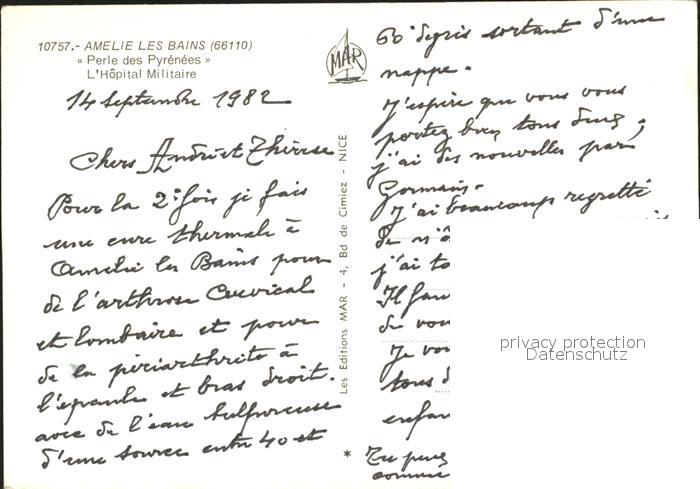 10757.- AMELIE LES BAINS (66110)
« Perle des Pyrénées »
L'Hôpital Militaire
MAR
14 Septembre 1982
Chers André et Thérèse
Pour la 2e fois je fais
une cure thermale à
Amélie les Bains pour
de l'arthrose Cervicale
et lombaire et pour
de la périarthrite à
l'épaule et bras droit.
avec de l'eau sulfureuse
d'une source entre 40 et
Les Editions MAR - 4, Bd de Cimiez - NICE
60 degrés sortant d'une
nappe.
J'espère que vous vous
portez bien tous deux,
j'ai des nouvelles par
Germain.
J'ai beaucoup regretté
de n'a
j'ai to
Il fau
de vou
Je vou
tous d
enfan
Tu peux
comme
privacy protection
Datenschutz